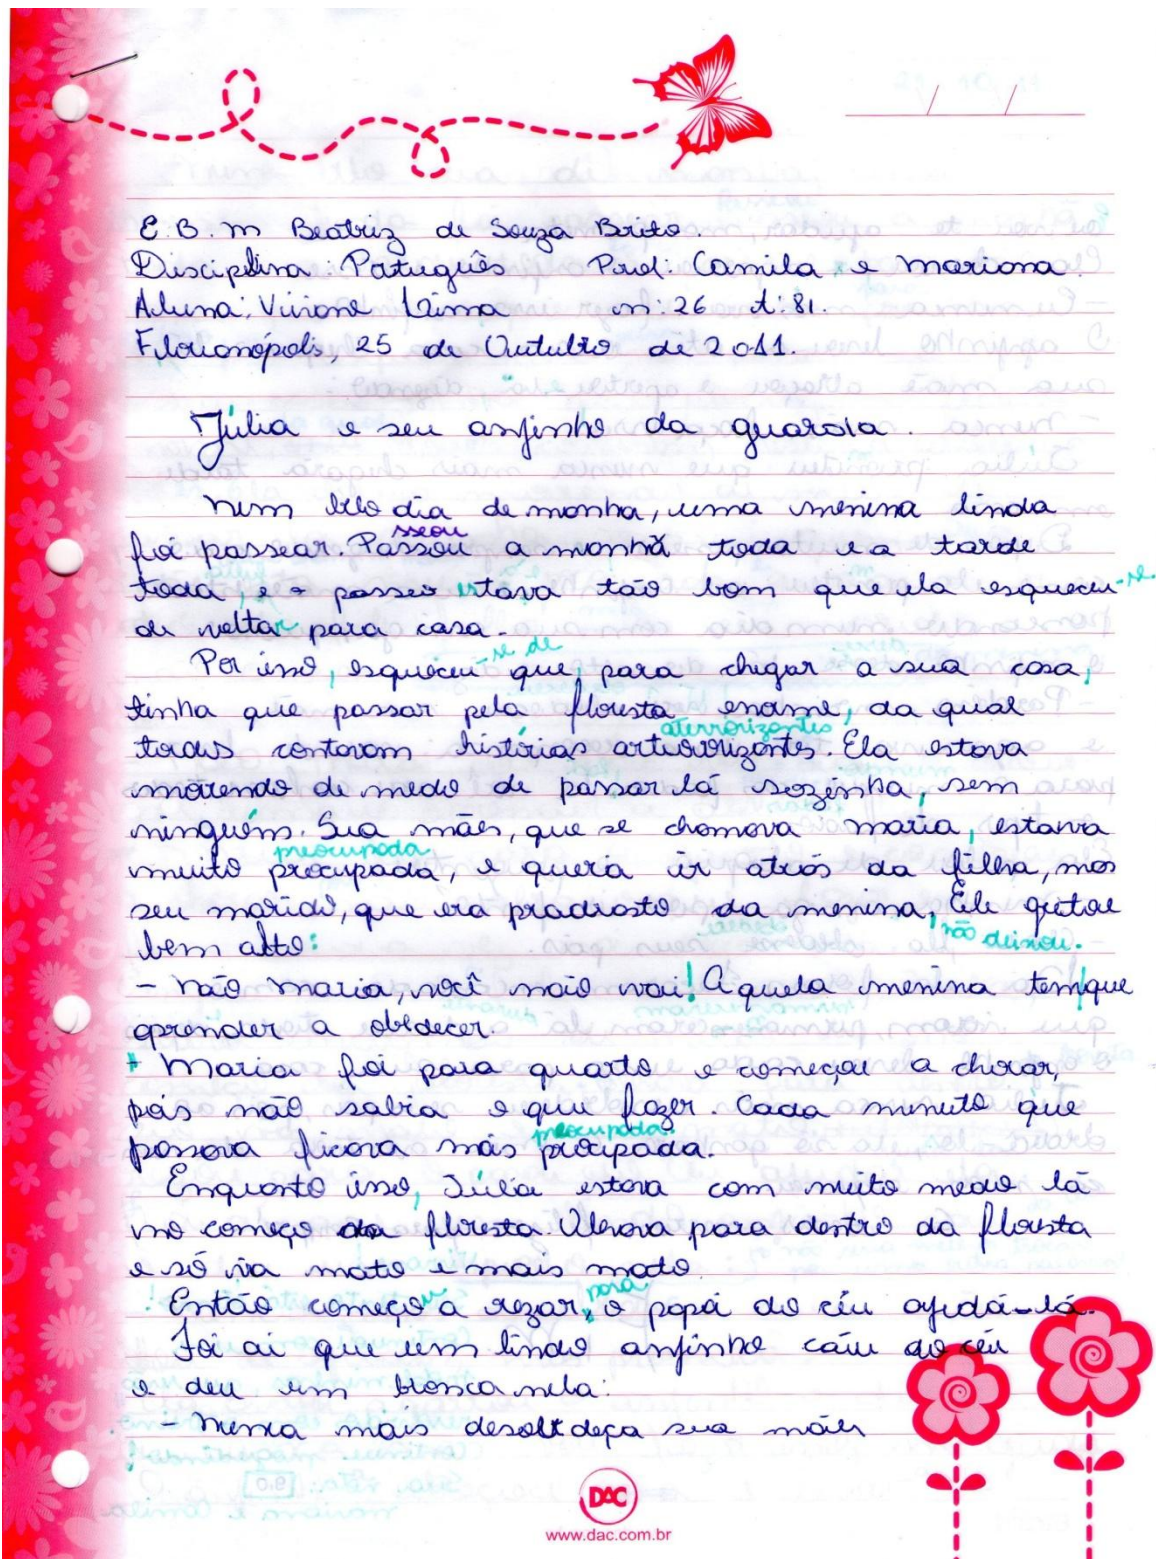 E.B.m Beatriz de Souza Brito.
Disciplina: Português Prof: Camila e mariana.
Aluna: Viviane Lima n: 26 t: 81.
Florianópolis, 25 de Outubro de 2011.
Júlia e seu anjinho da guarda.
Num belo dia de manha, uma menina linda
sseou
foi passear. Passou a manhã toda e a tarde
toda, e o passeio estava tão bom que ela esqueceu-se
de voltar para casa.
-se de
Por isso, esqueceu que, para chegar a sua casa,
tinha que passar pela floresta enorme, da qual
aterrorizantes
todos contavam histórias arterorizantes. Ela estava
morrendo de medo de passar lá sozinha, sem
ninguém. Sua mães, que se chamava maria, estava
preocupada
muito procupada, e queria ir atrás da filha, mas
seu marido, que era pradrasto da menina, Ele gritou
não deixou.
bem alto:
- não maria, você não vai! Aquela menina tem que
aprender a obdecer.
Maria foi para quarto e começou a chorar,
pois não sabia o que fazer. Cada minuto que
preocupada.
passava ficava mais procupada.
Enquanto isso, Júlia estava com muito medo lá
no começo da floresta. Olhava para dentro da floresta
e só via mato e mais mato.
para
Então começou a rezar, o papai do céu ajudá-lá.
Foi ai que um lindo anjinho caiu do céu
e deu um bronca nela:
- Nunca mais desobedeça sua mães
DAC
www.dac.com.br